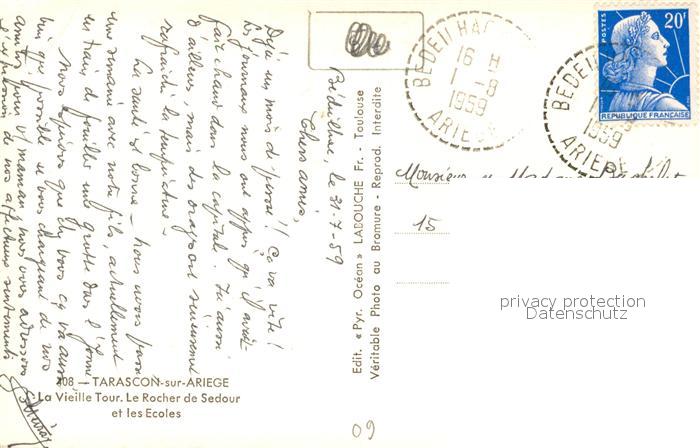 Bédeilhac, le 31-7-59
Chers amis,
Déjà un mois de passé !! Ça va vite !
Les journaux nous ont appris qu'il avait
fait chaud dans la capitale. Ici aussi
d'ailleurs, mais des orages ont sérieusement
rafraîchi la température.
La santé est bonne - nous avons passé
une semaine avec notre fils, actuellement
en train de fouiller une grotte dans l'Yonne
Nous espérons que chez vous ça va aussi
bien que possible et vous chargeant de nos
amitiés pour maman nous vous adressons
l'expression de nos affectueux sentiments
108 — TARASCON-sur-ARIEGE
La Vieille Tour. Le Rocher de Sedour
et les Ecoles
Edit. « Pyr. Océan » LABOUCHE Fr. - Toulouse
Véritable Photo au Bromure - Reprod. Interdite
BEDEILHAC
16 H
1 - 8
1959
ARIEGE
BEDEILHAC
1959
ARIEGE
POSTES
20F
REPUBLIQUE FRANÇAISE
Monsieur
15
privacy protection
Datenschutz
09